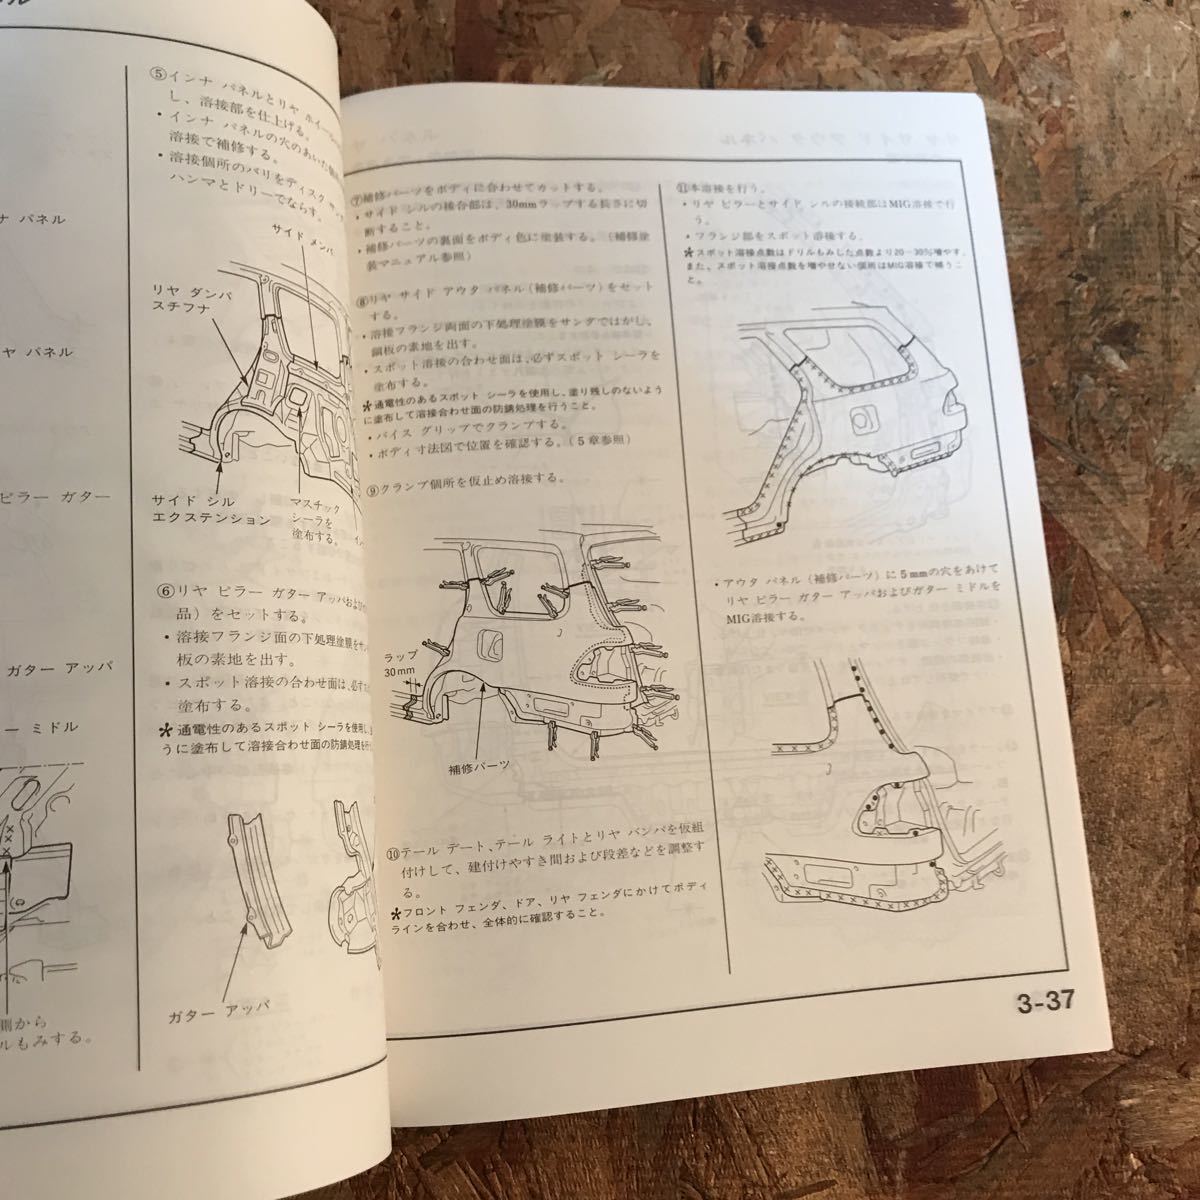 ル
ナ パネル
ヤ パネル
ピラー ガター
ガター アッパ
ー ミドル
側から
ルもみする。
⑤インナ パネルとリヤ ホイール
し、溶接部を仕上げる。
・インナ パネルの穴のあいた個
溶接で補修する。
・溶接個所のバリをディスク サン
ハンマとドリーでならす。
サイド メンバ
リヤ ダンパ
スチフナ
サイド シル
エクステンション
マスチック
シーラを
塗布する。
⑥リヤ ピラー ガター アッパおよび
品）をセットする。
・溶接フランジ面の下処理塗膜をサン
板の素地を出す。
・スポット溶接の合わせ面は、必ず
塗布する。
＊通電性のあるスポット シーラを使用し、
うに塗布して溶接合わせ面の防錆処理を行
ガター アッパ
⑦補修パーツをボディに合わせてカットする。
・サイド シルの接合部は、30mmラップする長さに切
断すること。
・補修パーツの裏面をボディ色に塗装する。（補修塗
装マニュアル参照）
⑧リヤ サイド アウタ パネル（補修パーツ）をセット
する。
・溶接フランジ両面の下処理塗膜をサンダではがし、
鋼板の素地を出す。
・スポット溶接の合わせ面は、必ずスポット シーラを
塗布する。
＊通電性のあるスポット シーラを使用し、塗り残しのないよう
に塗布して溶接合わせ面の防錆処理を行うこと。
・バイス グリップでクランプする。
・ボディ寸法図で位置を確認する。（5章参照）
⑨クランプ個所を仮止め溶接する。
ラップ
30mm
補修パーツ
⑩テール ゲート、テール ライトとリヤ バンパを仮組
付けして、建付けやすき間および段差などを調整す
る。
＊フロント フェンダ、ドア、リヤ フェンダにかけてボディ
ラインを合わせ、全体的に確認すること。
⑪本溶接を行う。
・リヤ ピラーとサイド シルの接続部はMIG溶接で行
う。
・フランジ部をスポット溶接する。
＊スポット溶接点数はドリルもみした点数より20－30％増やす。
また、スポット溶接点数を増やせない個所はMIG溶接で補うこ
と。
・アウタ パネル（補修パーツ）に5mmの穴をあけて
リヤ ピラー ガター アッパおよびガター ミドルを
MIG溶接する。
3-37